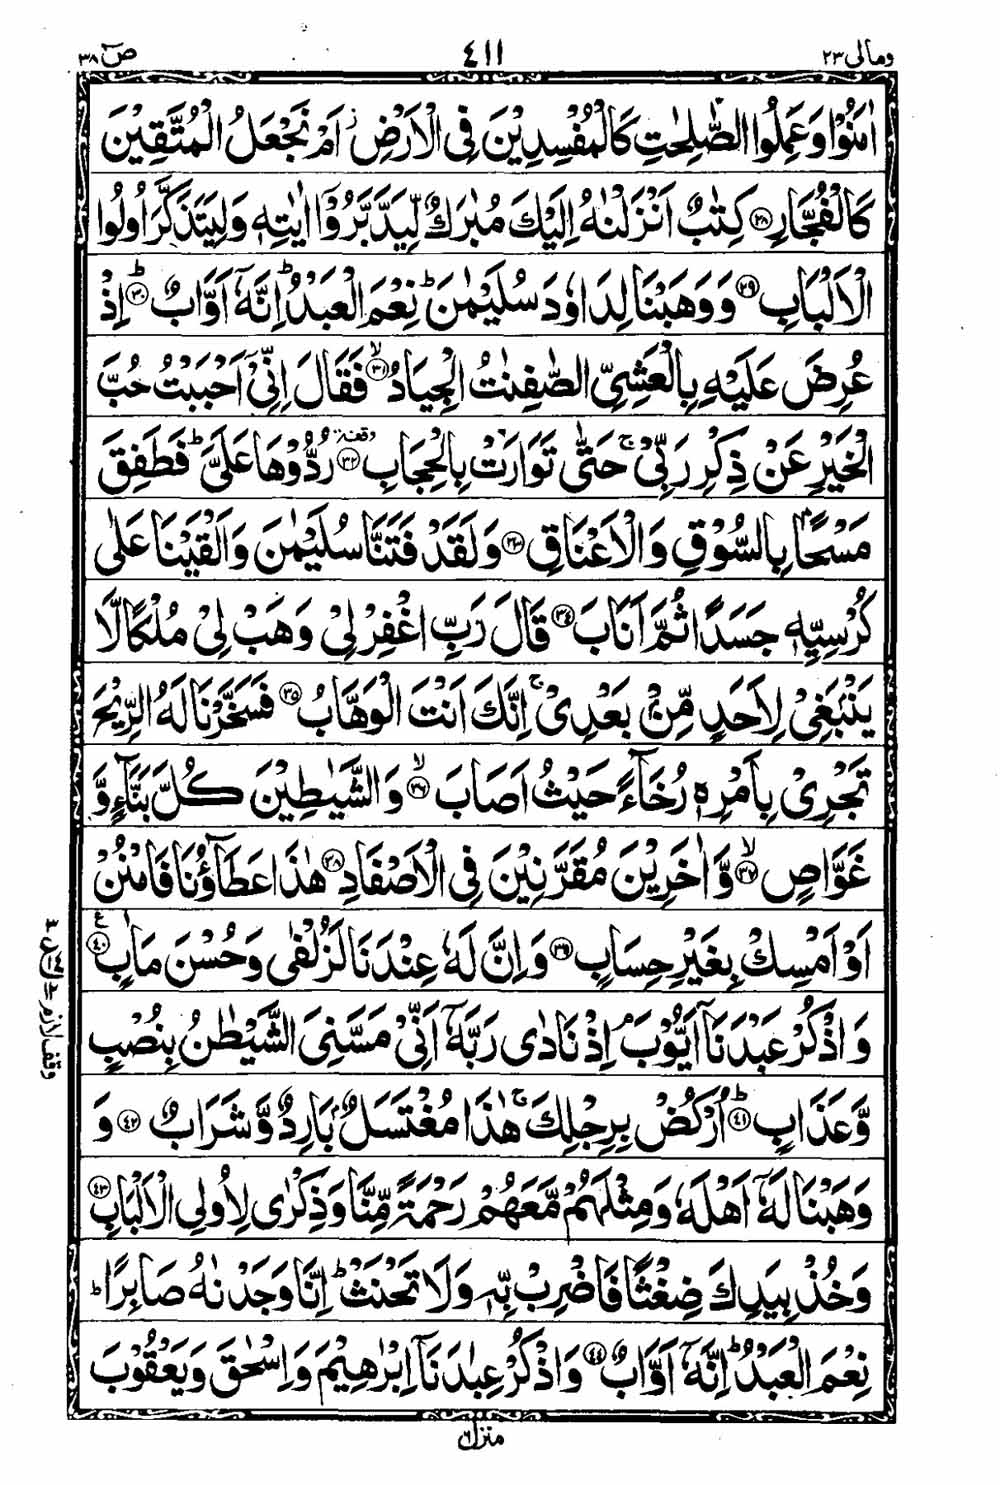 ومالی ٢٣ ٤١١ صٓ ٣٨
اٰمَنُوْا وَعَمِلُوا الصّٰلِحٰتِ كَالْمُفْسِدِيْنَ فِی الْاَرْضِ ز اَمْ نَجْعَلُ الْمُتَّقِيْنَ
كَالْفُجَّارِ ﴿٢٨﴾ كِتٰبٌ اَنْزَلْنٰهُ اِلَيْكَ مُبٰرَكٌ لِّيَدَّبَّرُوْۤا اٰيٰتِهٖ وَلِيَتَذَكَّرَ اُولُوا
الْاَلْبَابِ ﴿٢٩﴾ وَوَهَبْنَا لِدَاوٗدَ سُلَيْمٰنَ ؕ نِعْمَ الْعَبْدُ ؕ اِنَّهٗۤ اَوَّابٌ ﴿٣٠﴾ ؕ اِذْ
عُرِضَ عَلَيْهِ بِالْعَشِیِّ الصّٰفِنٰتُ الْجِيَادُ ﴿٣١﴾ ۙ فَقَالَ اِنِّیْۤ اَحْبَبْتُ حُبَّ
الْخَيْرِ عَنْ ذِكْرِ رَبِّیْ ۚ حَتّٰی تَوَارَتْ بِالْحِجَابِ ﴿٣٢﴾ وقفة رُدُّوْهَا عَلَیَّ ؕ فَطَفِقَ
مَسْحًۢا بِالسُّوْقِ وَالْاَعْنَاقِ ﴿٣٣﴾ وَلَقَدْ فَتَنَّا سُلَيْمٰنَ وَاَلْقَيْنَا عَلٰی
كُرْسِيِّهٖ جَسَدًا ثُمَّ اَنَابَ ﴿٣٤﴾ قَالَ رَبِّ اغْفِرْ لِیْ وَهَبْ لِیْ مُلْكًا لَّا
يَنْۢبَغِیْ لِاَحَدٍ مِّنْۢ بَعْدِیْ ۚ اِنَّكَ اَنْتَ الْوَهَّابُ ﴿٣٥﴾ فَسَخَّرْنَا لَهُ الرِّيْحَ
تَجْرِیْ بِاَمْرِهٖ رُخَآءً حَيْثُ اَصَابَ ﴿٣٦﴾ ۙ وَالشَّيٰطِيْنَ كُلَّ بَنَّآءٍ وَّ
غَوَّاصٍ ﴿٣٧﴾ ۙ وَّاٰخَرِيْنَ مُقَرَّنِيْنَ فِی الْاَصْفَادِ ﴿٣٨﴾ هٰذَا عَطَآؤُنَا فَامْنُنْ
اَوْ اَمْسِكْ بِغَيْرِ حِسَابٍ ﴿٣٩﴾ وَاِنَّ لَهٗ عِنْدَنَا لَزُلْفٰی وَحُسْنَ مَاٰبٍ ﴿٤٠﴾ ع
وَاذْكُرْ عَبْدَنَاۤ اَيُّوْبَ ۘ اِذْ نَادٰی رَبَّهٗۤ اَنِّیْ مَسَّنِیَ الشَّيْطٰنُ بِنُصْبٍ
وَّعَذَابٍ ﴿٤١﴾ ؕ اُرْكُضْ بِرِجْلِكَ ۚ هٰذَا مُغْتَسَلٌۢ بَارِدٌ وَّشَرَابٌ ﴿٤٢﴾ وَ
وَهَبْنَا لَهٗۤ اَهْلَهٗ وَمِثْلَهُمْ مَّعَهُمْ رَحْمَةً مِّنَّا وَذِكْرٰی لِاُولِی الْاَلْبَابِ ﴿٤٣﴾
وَخُذْ بِيَدِكَ ضِغْثًا فَاضْرِبْ بِّهٖ وَلَا تَحْنَثْ ؕ اِنَّا وَجَدْنٰهُ صَابِرًا ؕ
نِعْمَ الْعَبْدُ ؕ اِنَّهٗۤ اَوَّابٌ ﴿٤٤﴾ وَاذْكُرْ عِبٰدَنَاۤ اِبْرٰهِيْمَ وَاِسْحٰقَ وَيَعْقُوْبَ
منزل ٦